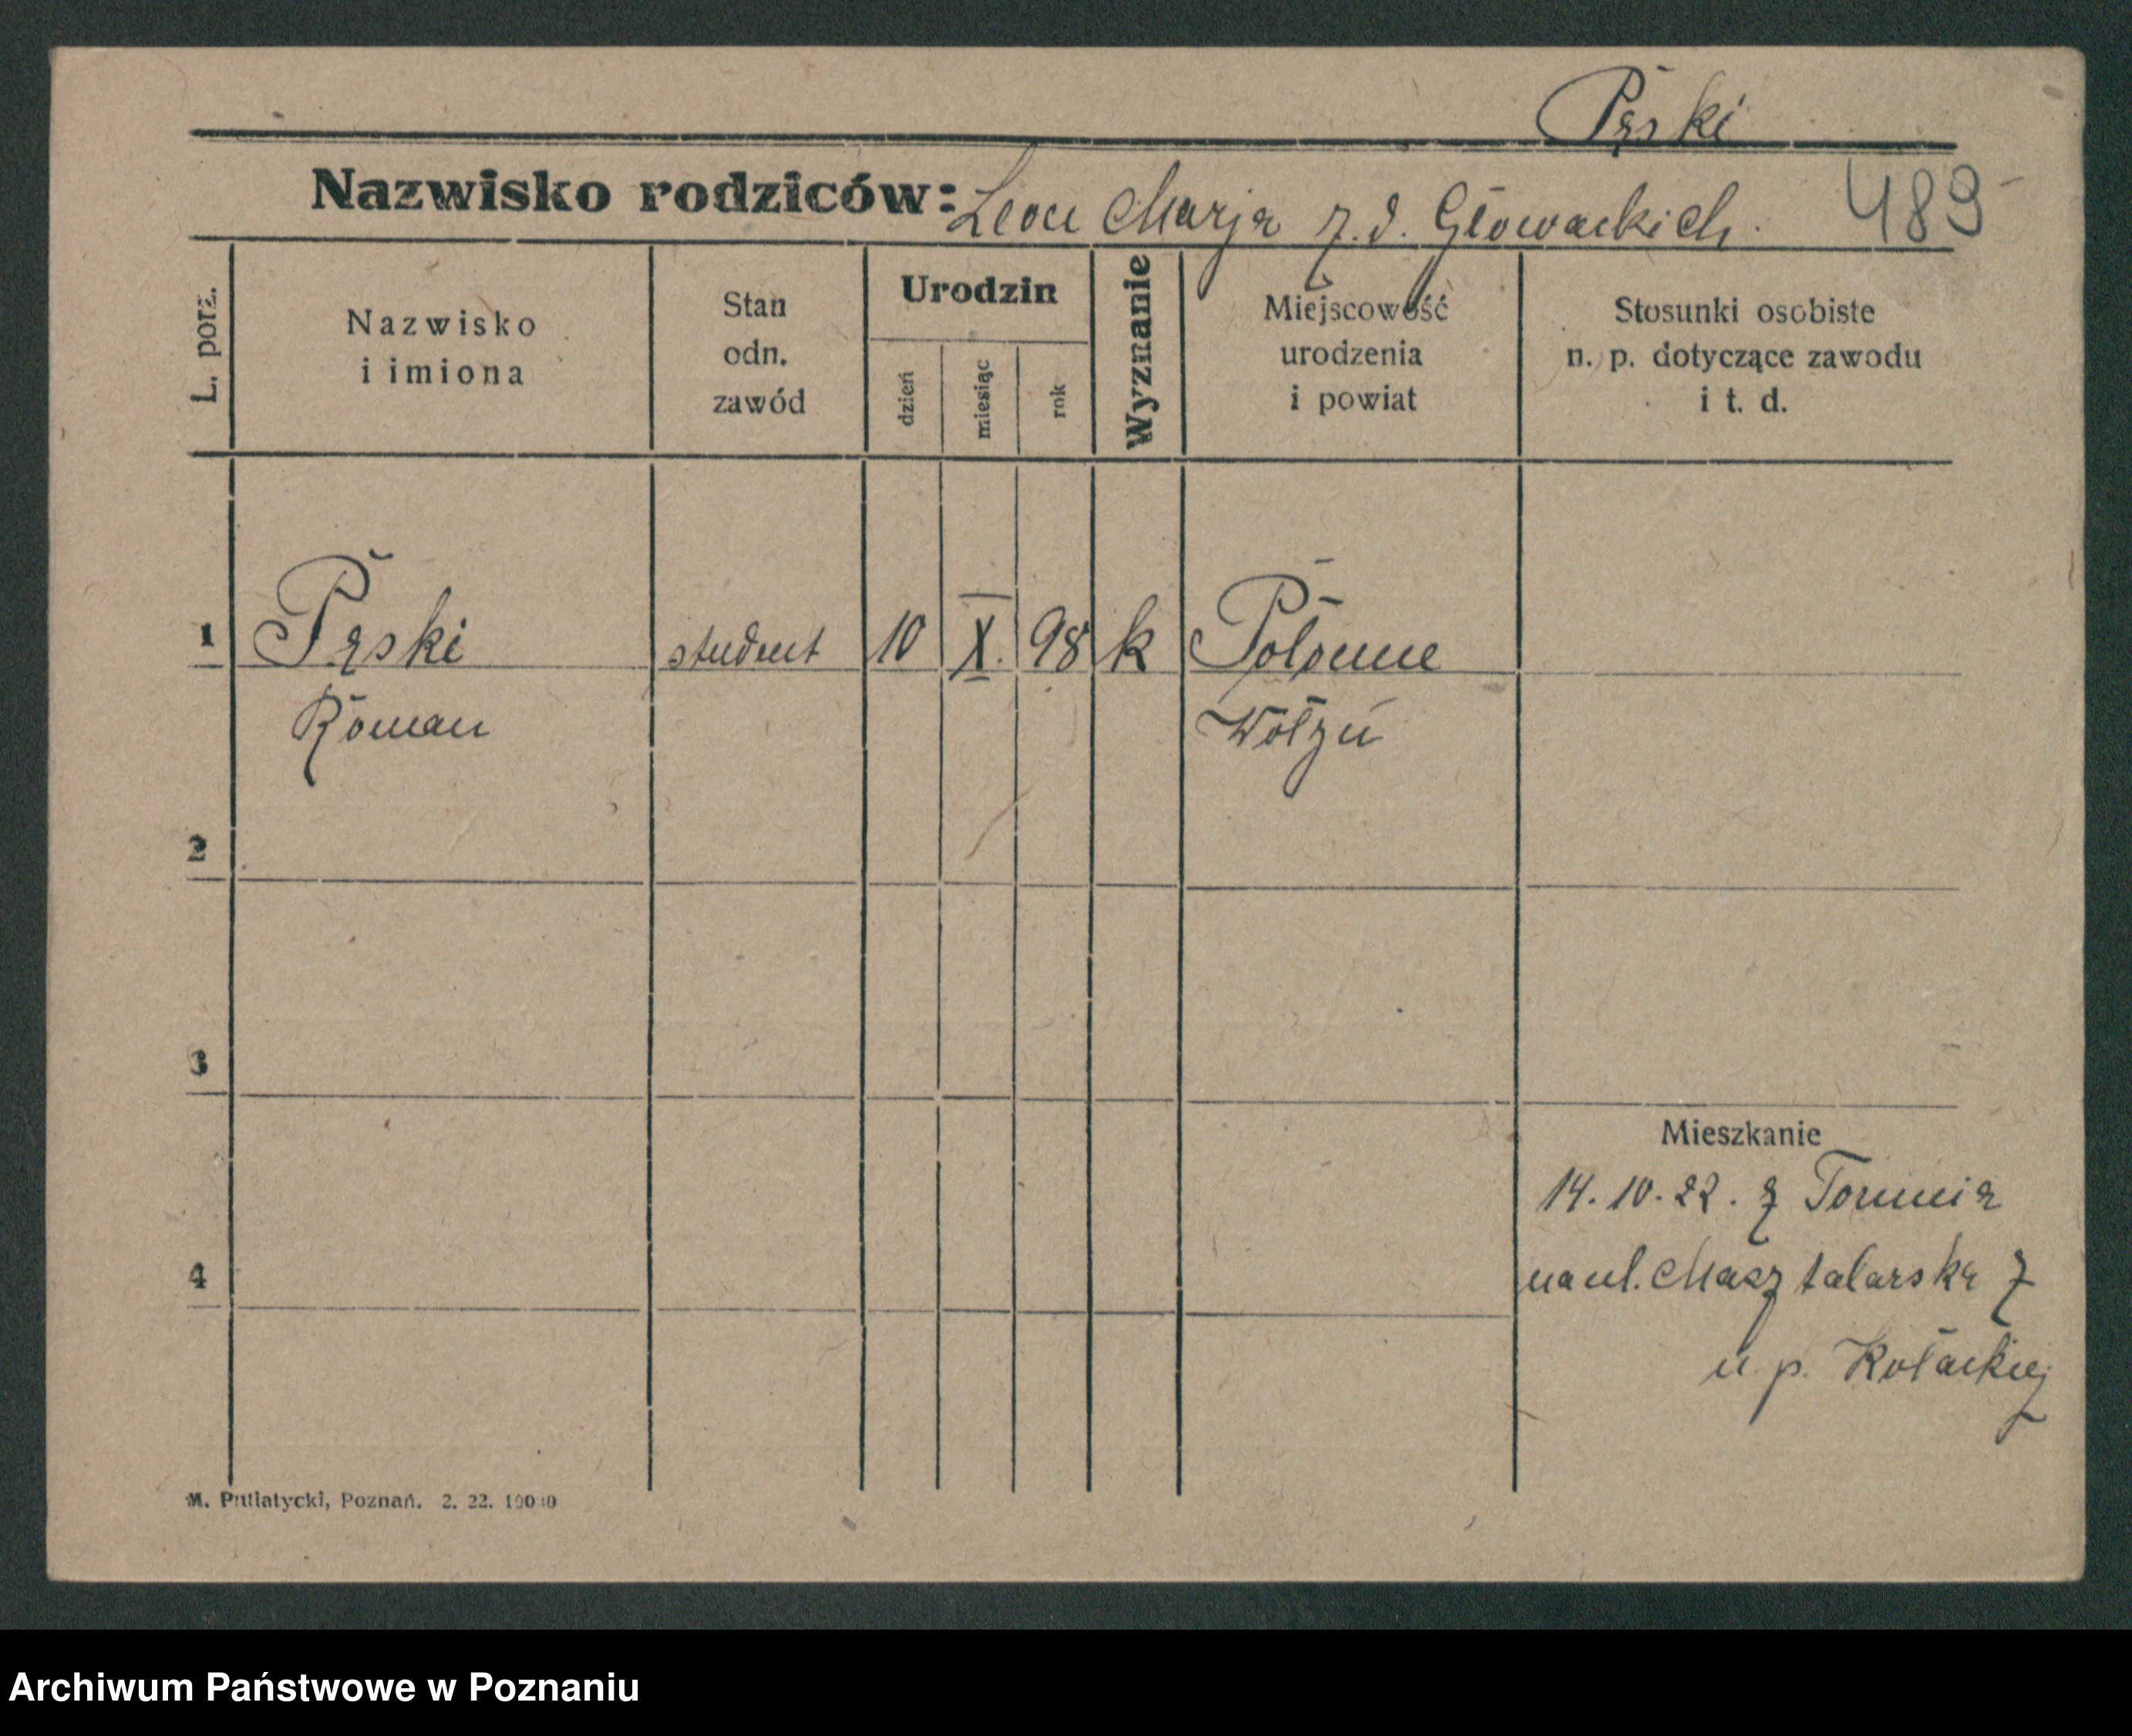 Pęski
Nazwisko rodziców: Leon Marja z.d. Głowackich. 489
L. porz.
Nazwisko
i imiona
Stan
odn.
zawód
Urodzin
dzień
miesiąc
rok
Wyznanie
Miejscowość
urodzenia
i powiat
Stosunki osobiste
n. p. dotyczące zawodu
i t. d.
1 Pęski student 10 X. 98 k Połonne
Roman Wołyń
2
3
Mieszkanie
14.10.22. z Torunia
4 na ul. Masztalarska 7
u p. Kołackiej
M. Putiatycki, Poznań. 2. 22. 10000
Archiwum Państwowe w Poznaniu